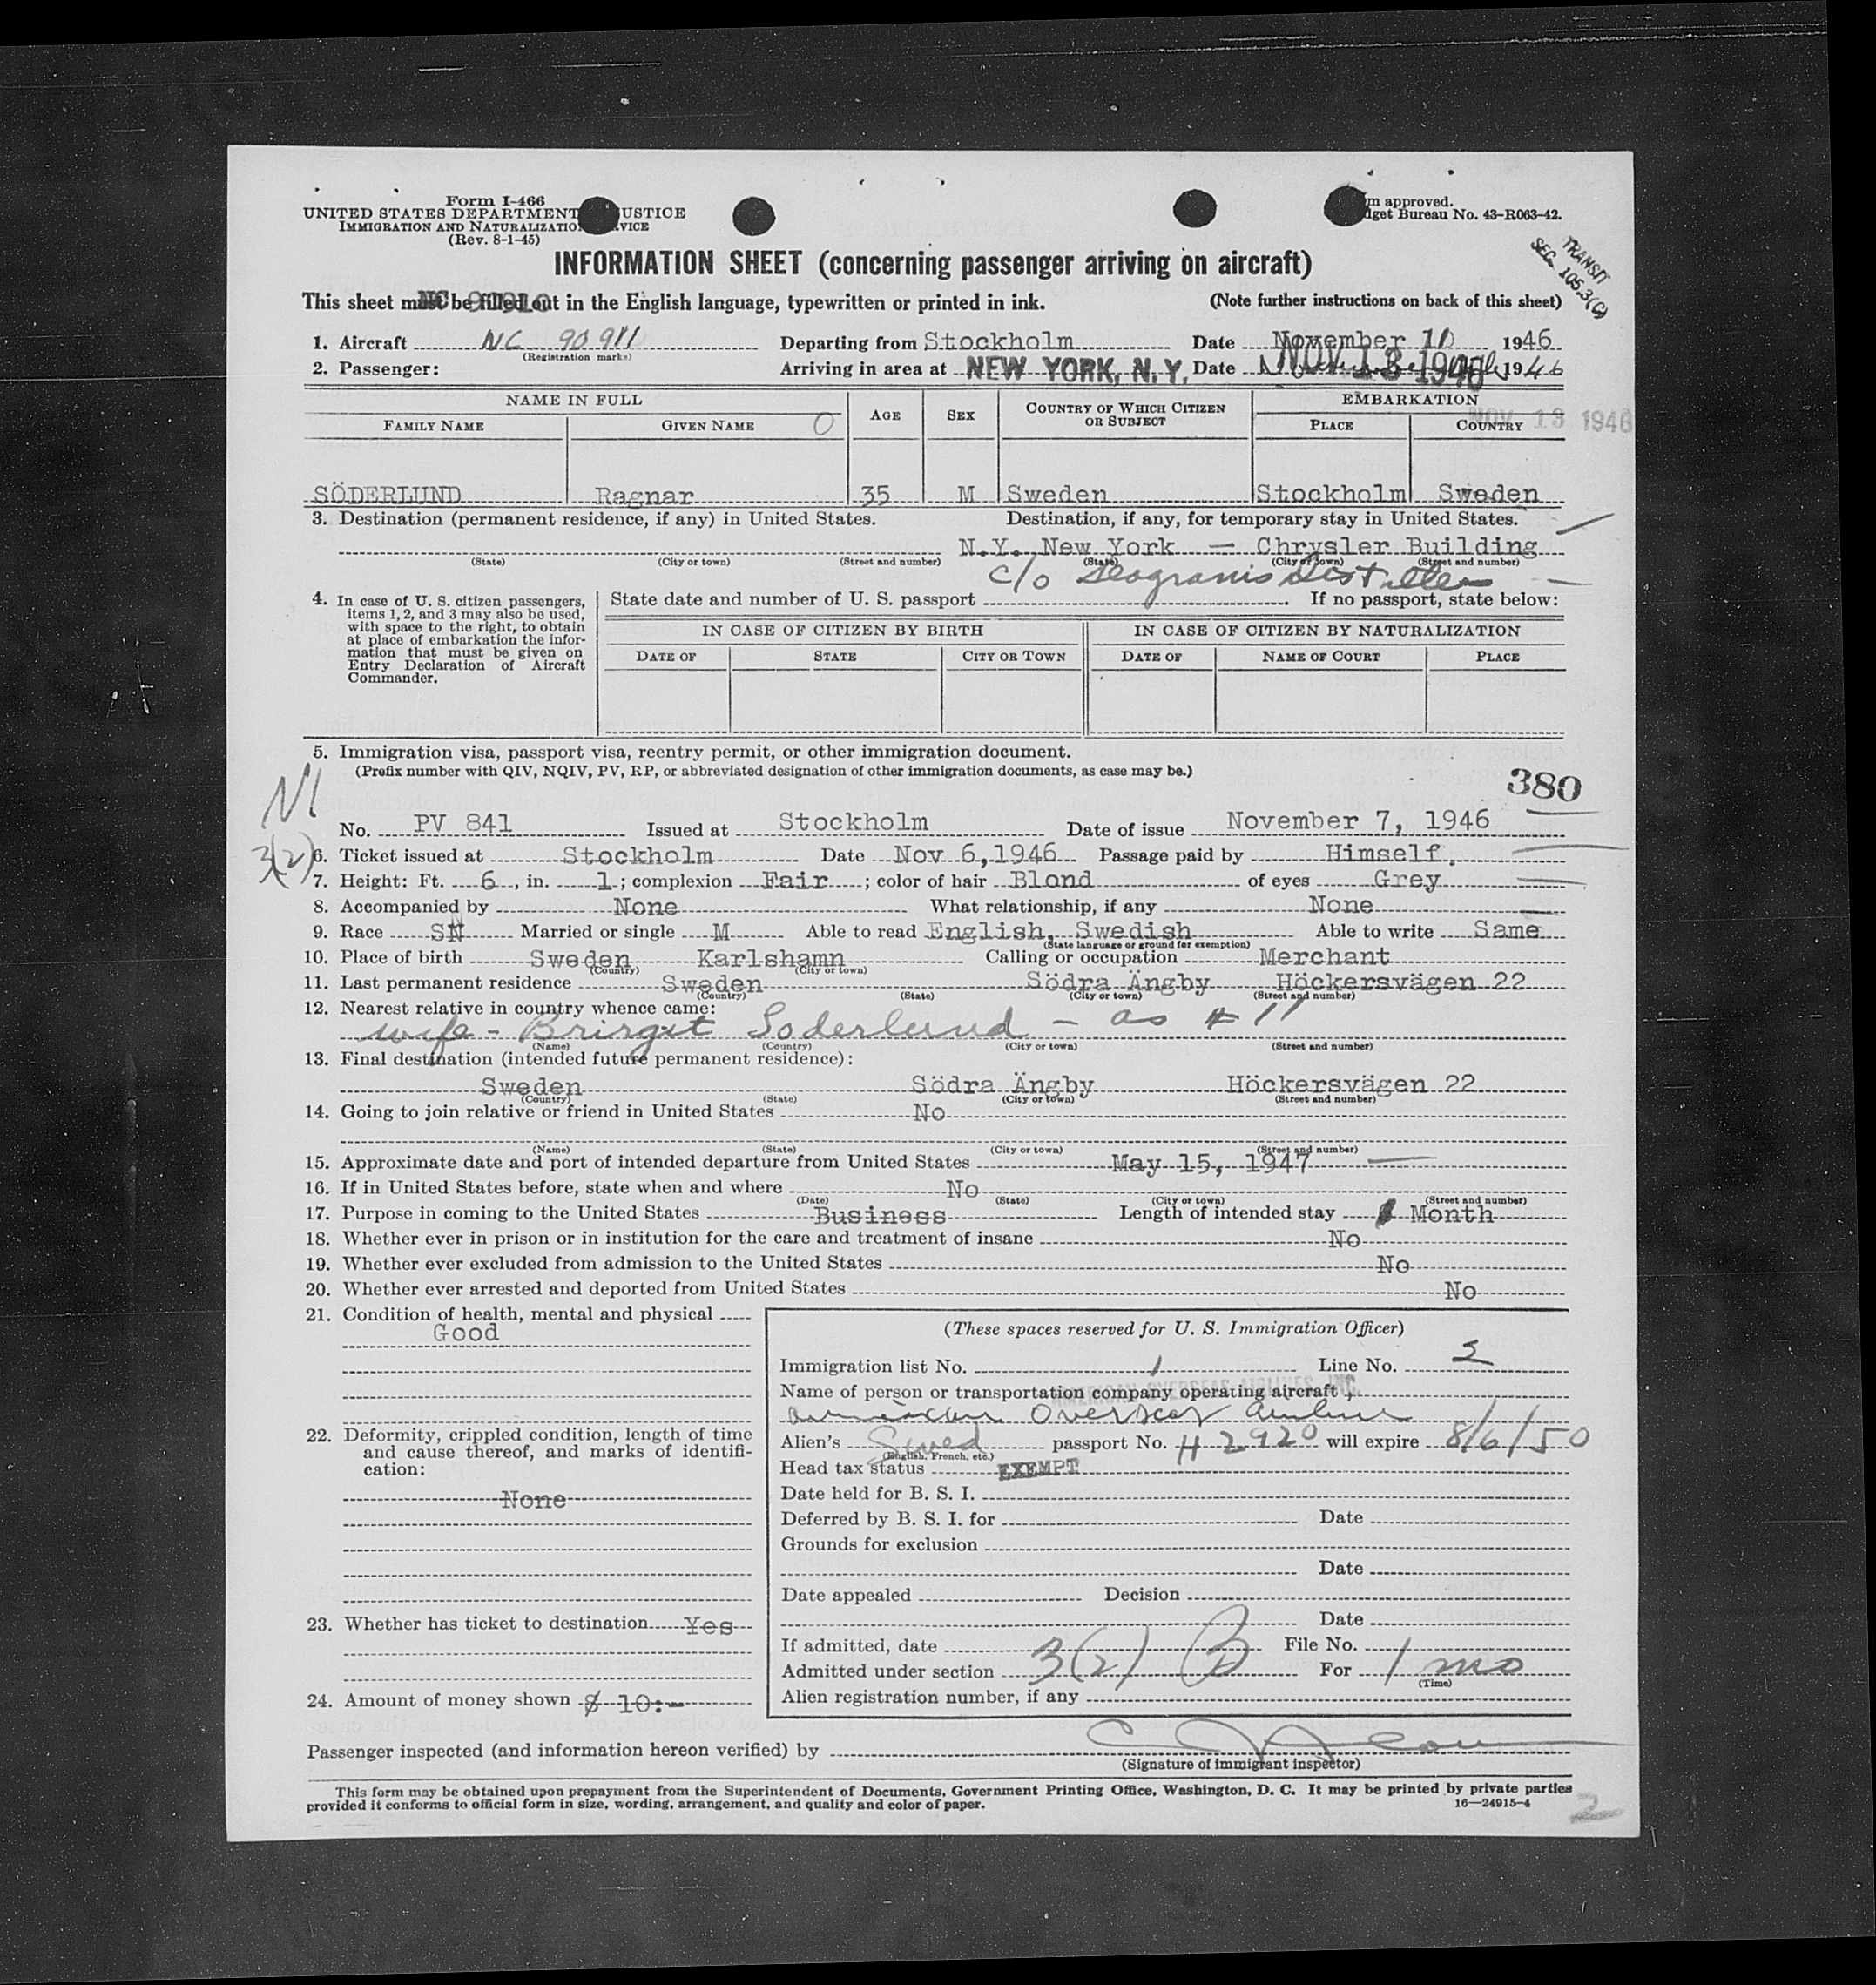 Form I-466
UNITED STATES DEPARTMENT USTICE
IMMIGRATION AND NATURALIZATIO VICE
(Rev. 8-1-45)
m approved.
get Bureau No. 43-R063-42.
TRANSIT
SEC. 105.3(C)
INFORMATION SHEET (concerning passenger arriving on aircraft)
This sheet must be filled out in the English language, typewritten or printed in ink. (Note further instructions on back of this sheet)
NC 90910
1. Aircraft NC 90911 Departing from Stockholm Date November 1946
(Registration marks)
2. Passenger: Arriving in area at NEW YORK, N.Y. Date NOV 13 1946 1946
NAME IN FULL AGE SEX COUNTRY OF WHICH CITIZEN OR SUBJECT EMBARKATION
FAMILY NAME GIVEN NAME O PLACE COUNTRY
NOV 13 1946
SÖDERLUND Ragnar 35 M Sweden Stockholm Sweden
3. Destination (permanent residence, if any) in United States. Destination, if any, for temporary stay in United States.
N.Y. New York — Chrysler Building
(State) (City or town) (Street and number) (State) (City or town) (Street and number)
c/o Seagrams
4. In case of U. S. citizen passengers, items 1, 2, and 3 may also be used, with space to the right, to obtain at place of embarkation the information that must be given on Entry Declaration of Aircraft Commander.
State date and number of U. S. passport If no passport, state below:
IN CASE OF CITIZEN BY BIRTH IN CASE OF CITIZEN BY NATURALIZATION
DATE OF STATE CITY OR TOWN DATE OF NAME OF COURT PLACE
5. Immigration visa, passport visa, reentry permit, or other immigration document.
(Prefix number with QIV, NQIV, PV, RP, or abbreviated designation of other immigration documents, as case may be.)
380
NI
No. PV 841 Issued at Stockholm Date of issue November 7, 1946
3(2)
6. Ticket issued at Stockholm Date Nov 6,1946 Passage paid by Himself.
7. Height: Ft. 6, in. 1; complexion Fair; color of hair Blond of eyes Grey
8. Accompanied by None What relationship, if any None
9. Race SN Married or single M Able to read English, Swedish Able to write Same
(State language or ground for exemption)
10. Place of birth Sweden Karlshamn Calling or occupation Merchant
(Country) (City or town)
11. Last permanent residence Sweden Södra Ängby Höckersvägen 22
(Country) (State) (City or town) (Street and number)
12. Nearest relative in country whence came:
wife - Brirgit Soderlund - as # 11
(Name) (Country) (City or town) (Street and number)
13. Final destination (intended future permanent residence):
Sweden Södra Ängby Höckersvägen 22
(Country) (State) (City or town) (Street and number)
14. Going to join relative or friend in United States No
(Name) (State) (City or town) (Street and number)
15. Approximate date and port of intended departure from United States May 15, 1947
16. If in United States before, state when and where No
(Date) (State) (City or town) (Street and number)
17. Purpose in coming to the United States Business Length of intended stay Month
18. Whether ever in prison or in institution for the care and treatment of insane No
19. Whether ever excluded from admission to the United States No
20. Whether ever arrested and deported from United States No
21. Condition of health, mental and physical
Good
22. Deformity, crippled condition, length of time and cause thereof, and marks of identification:
None
23. Whether has ticket to destination Yes
24. Amount of money shown $ 10:-
(These spaces reserved for U. S. Immigration Officer)
Immigration list No. 1 Line No. 2
Name of person or transportation company operating aircraft
AMERICAN OVERSEAS AIRLINES, INC.
American Overseas Airline
Alien's Swed passport No. H 2920 will expire 8/6/50
(English, French, etc.)
Head tax status EXEMPT
Date held for B. S. I.
Deferred by B. S. I. for Date
Grounds for exclusion
Date
Date appealed Decision
Date
If admitted, date File No.
Admitted under section 3(2) B For 1 mo
(Time)
Alien registration number, if any
Passenger inspected (and information hereon verified) by
(Signature of immigrant inspector)
This form may be obtained upon prepayment from the Superintendent of Documents, Government Printing Office, Washington, D. C. It may be printed by private parties
provided it conforms to official form in size, wording, arrangement, and quality and color of paper. 16—24915-4
2